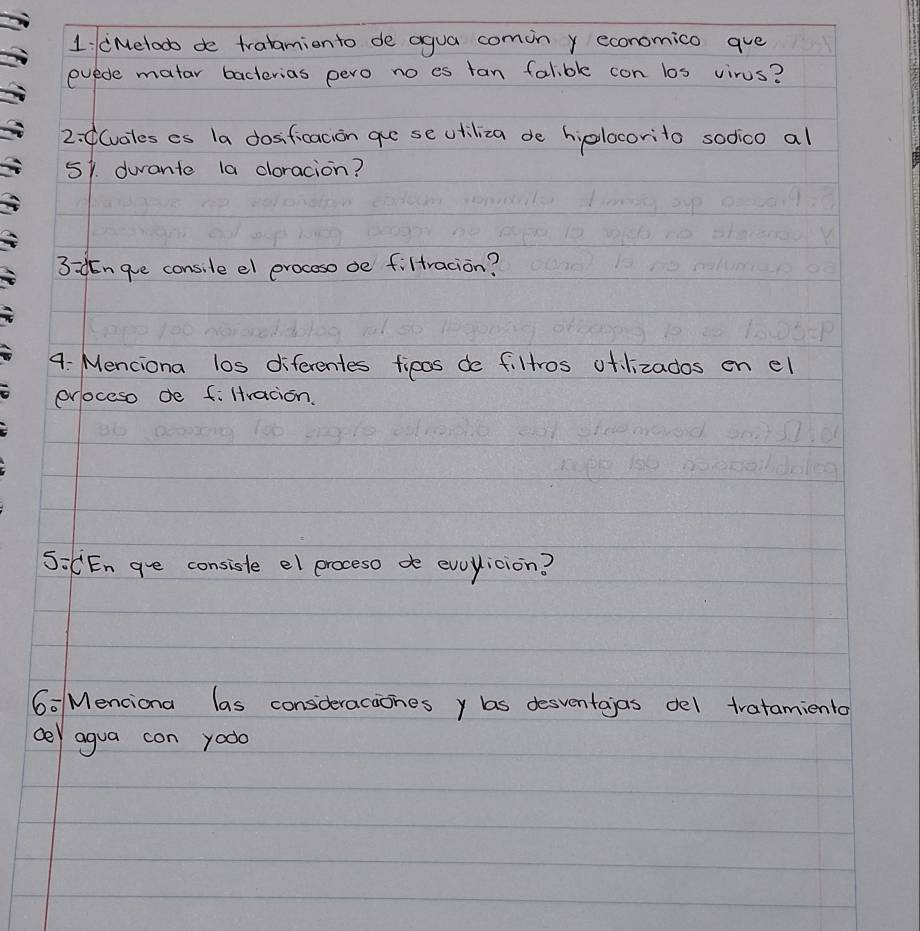 1:-¿Metodo de tratamiento de agua común y economico que
puede matar bacterias pero no es tan falible con los virus?
2:-¿Cuales es la dosificación que se utiliza de hipolocorito sodico al
5%. durante la cloración?
3:-¿En que consite el procoso de filtración?
4:- Menciona los diferentes tipos de filtros utilizados en el
proceso de filtración.
5:-¿En que consiste el proceso de evuyición?
6:- Menciona las consideraciones y las desventajas del tratamiento
del agua con yodo